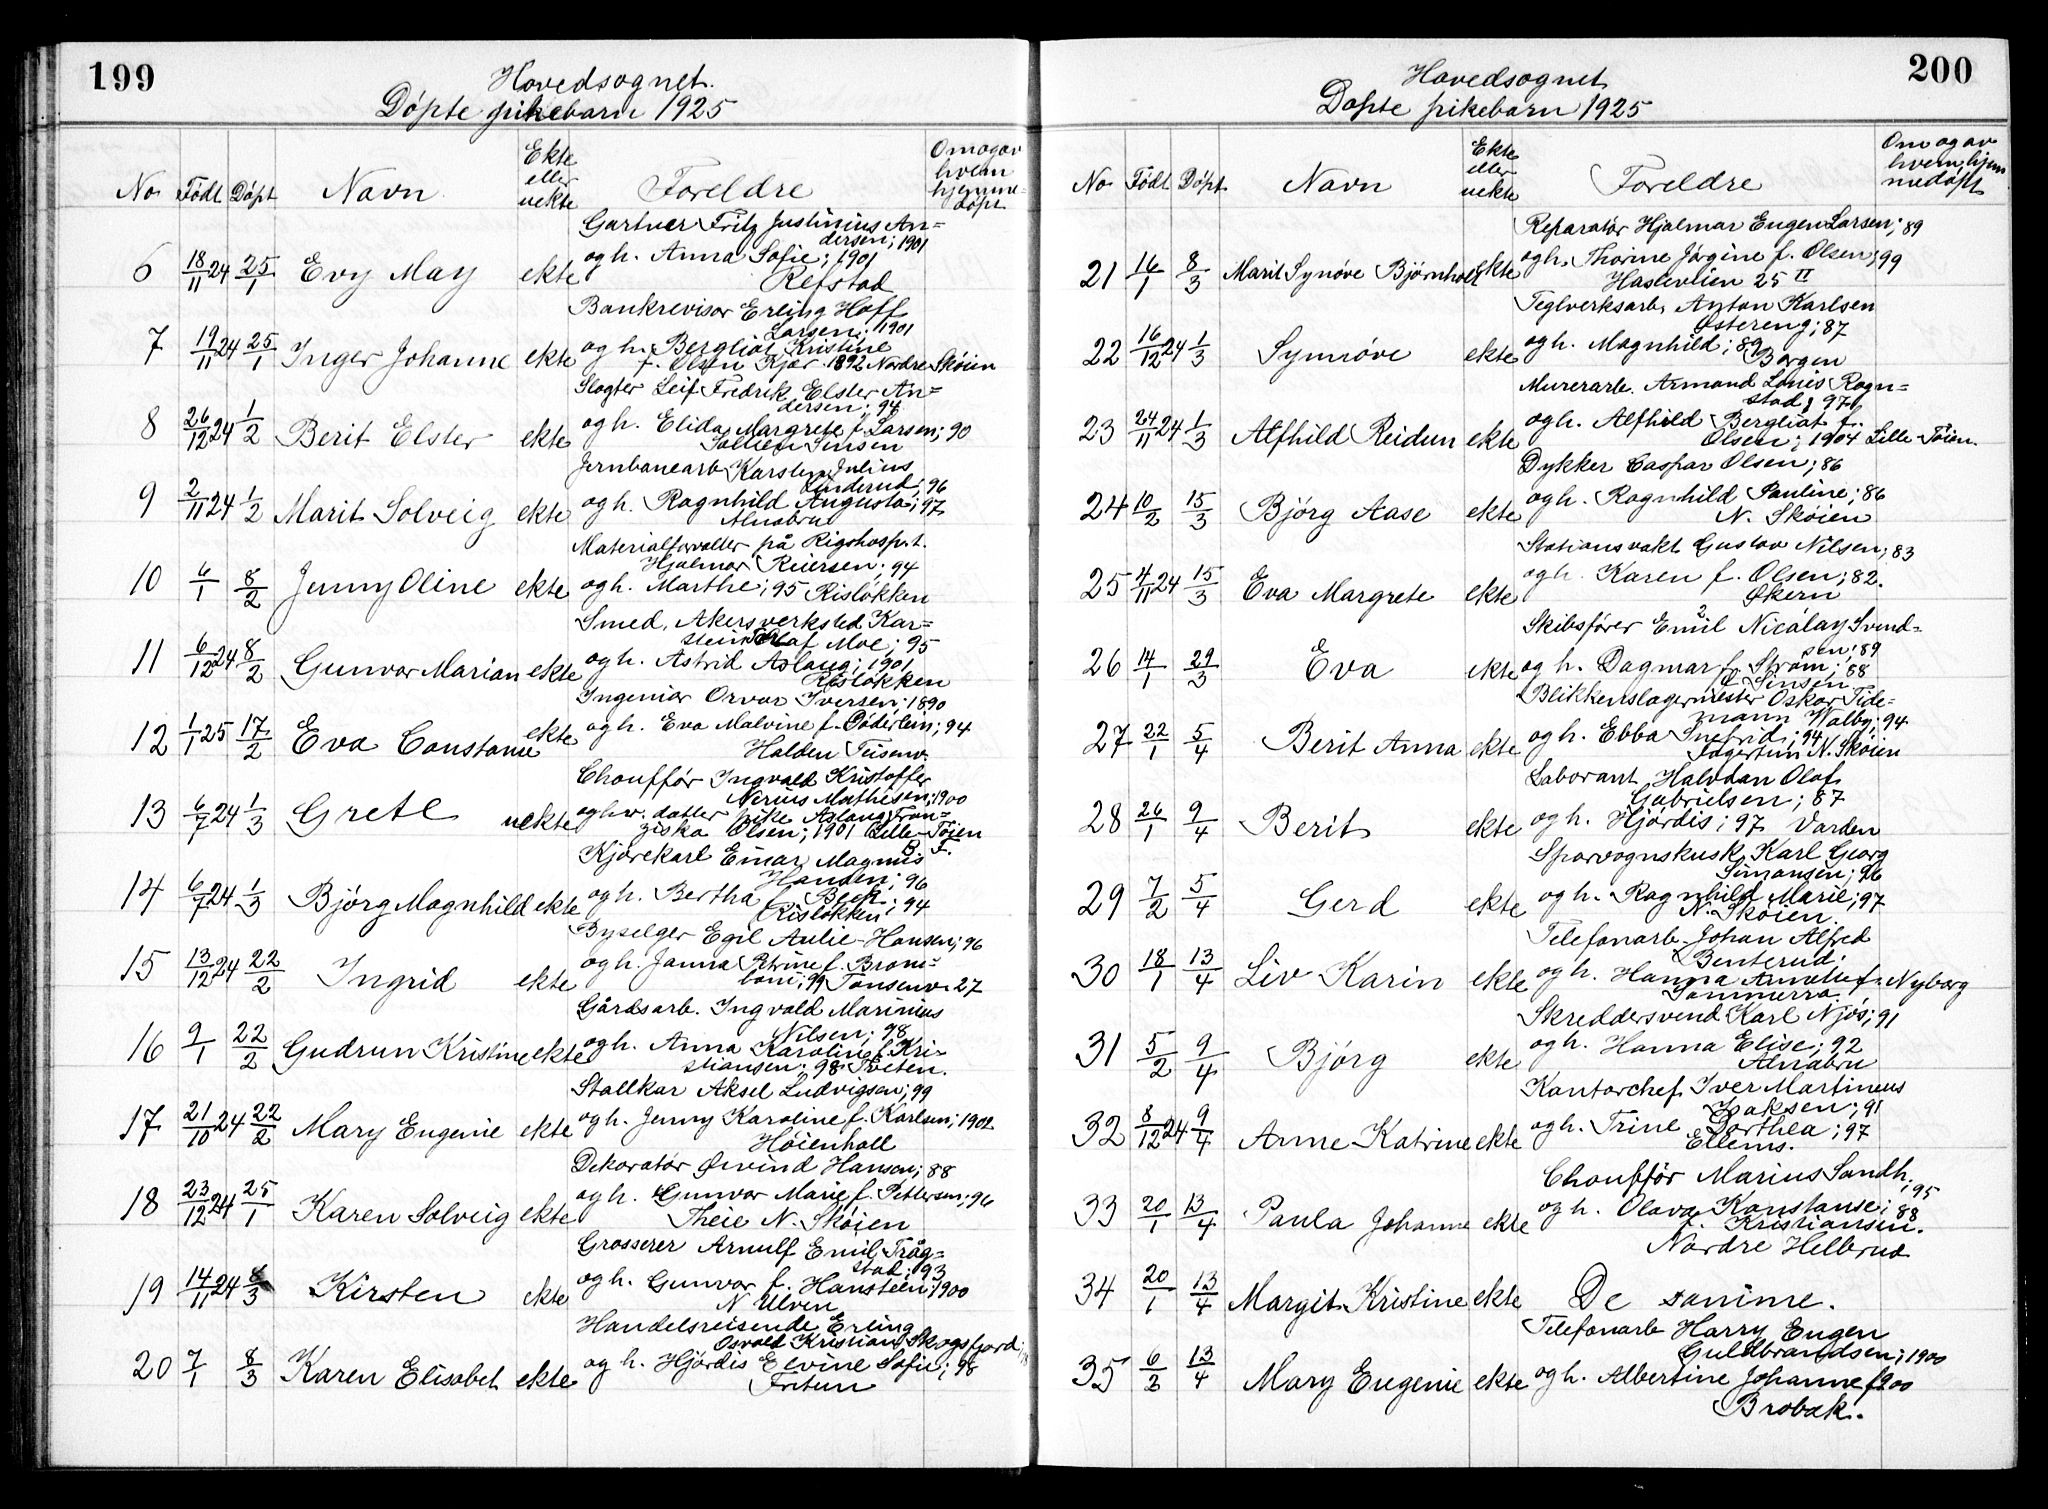 199
Hovedsognet.
Døpte pikebarn 1925
No Født Døpt Navn Ekte eller uekte Foreldre Om og av hvem hjemmedøpt
Gartner Fritz Justinius An=
dersen; 1901
6 18/11 24 25/1 Evy May ekte og h. Anna Sofie; 1901
Refstad
Bankrevisor Erling Hoff
Larsen; 1901
7 19/11 24 25/1 Inger Johanne ekte og h. Bergliot Kristine
f. Olsen Kjær 1892 Nordre Skøien
Slagter Leif Fredrik Elster An=
dersen; 94
8 26/12 24 1/2 Berit Elster ekte og h. Elida Margrete f. Larsen; 90
Sinsen
Jernbanearb Karsten Julius
Linderud; 96
9 2/11 24 1/2 Marit Solveig ekte og h. Ragnhild Augusta; 97
Alnabru
Materialforvalter på Rigshospit.
Hjalmar Reiersen; 94
10 6/1 8/2 Jenny Oline ekte og h. Marthe; 95 Risløkken
Smed, Akersverksted Kar=
stein Olaf Moe; 95
11 6/12 24 8/2 Gunvor Marian ekte og h. Astrid Aslaug; 1901
Risløkken
Ingeniør Orvar Iversen; 1890
12 1/1 25 17/2 Eva Constanse ekte og h. Eva Malvine f. Døderlein; 94
Halden Teisenv.
Chouffør Ingvald Kristoffer
Nerius Mathisen; 1900
13 6/7 24 1/3 Grete uekte og hv. datter pike Aslaug Fran=
ziska Olsen; 1901 Lille-Tøien
B. F.
Kjørekarl Einar Magnus
Handen; 96
14 6/7 24 1/3 Bjørg Magnhild ekte og h. Bertha f. Beck; 94
Risløkken
Byselger Egil Aulie-Hansen; 96
15 13/12 24 22/2 Ingrid ekte og h. Janna Petrine f. Bram=
bani; 99 Tonsenv. 27
Gårdsarb. Ingvald Marinius
Nilsen; 98
16 9/1 22/2 Gudrun Kristine ekte og h. Anna Karoline f. Kri-
stiansen; 98 Tveten.
Stallkar Aksel Ludvigsen; 99
17 21/10 24 22/2 Mary Eugenie ekte og h. Jenny Karoline f. Karlsen; 1902
Høienhall
Dekoratør Øivind Hansen; 88
18 23/12 24 25/1 Karen Solveig ekte og h. Gunvor Marie f. Pettersen; 96
Theie N. Skøien
Grosserer Arnulf Emil Tråg=
stad; 93
19 14/11 24 8/3 Kirsten ekte og h. Gunvor f. Hansteen; 1900
N Ulven
Handelsreisende Erling
Osvald Kristian Skogsfjord;
20 7/1 8/3 Karen Elisabet ekte og h. Hjørdis Elvine Sofie; 98
Fretun
200
Hovedsognet
Døpte pikebarn 1925
No Født Døpt Navn Ekte eller uekte Foreldre Om og av hvem hjemmedøpt
Reparatør Hjalmar Eugen Larsen; 89
21 16/1 8/3 Marit Synøve Bjørnholt ekte og h. Thorine Jørgine f. Olsen; 99
Haslevlien 25 II
Teglverksarb. Anton Karlsen
Østereng; 87
22 16/12 24 1/3 Synnøve ekte og h. Magnhild; 89
Borgen
Murerarb. Armand Louis Rogn=
stad; 97
23 24/11 24 1/3 Alfhild Reidun ekte og h. Alfhild Bergliot f.
Olsen; 1904 Lille-Tøien.
Dykker Caspar Olsen; 86
24 10/2 15/3 Bjørg Aase ekte og h. Ragnhild Pauline; 86
N. Skøien
Stationsvakt Gustav Nilsen; 83
25 4/11 24 15/3 Eva Margrete ekte og h. Karen f. Olsen; 82.
Økern
Skibsfører Emil Nicolay Svend-
sen; 89
26 14/1 29/3 Eva ekte og h. Dagmar f. Strøm; 88
Sinsen
Blikkenslagermester Oskar Tide-
mann Walby; 94
27 22/1 5/4 Berit Anna ekte og h. Ebba Snefrid; 94
N. Skøien
Laborant Halvdan Olaf
Gabrielsen; 87
28 26/1 9/4 Berit ekte og h. Hjørdis; 97 Varden
Sporvognskusk Karl Georg
Simonsen; 96
29 7/2 5/4 Gerd ekte og h. Ragnhild Marie; 97
N. Skøien.
Telefonarb. Johan Alfred
Benterud;
30 18/1 13/4 Liv Karin ekte og h. Hanna Amalie f. Nyborg
Sommerro.
Skreddersvend Karl Njøs; 91
31 5/2 9/4 Bjørg ekte og h. Hanna Elise; 92
Alnabru
Kontorchef Iver Martineus
Isaksen; 91
32 8/12 24 9/4 Anne Katrine ekte og h. Trine Dorthea; 97
Ellems.
Chouffør Marius Sandh.
; 95
33 20/1 13/4 Paula Johanne ekte og h. Olava Konstanse; 88
f. Kristiansen.
Nordre Hellerud
34 20/1 13/4 Margit Kristine ekte De samme.
Telefonarb Harry Eugen
Guldbrandsen; 1900
35 6/2 13/4 Mary Eugenie ekte og h. Albertine Johanne f. 1900
Brobak.